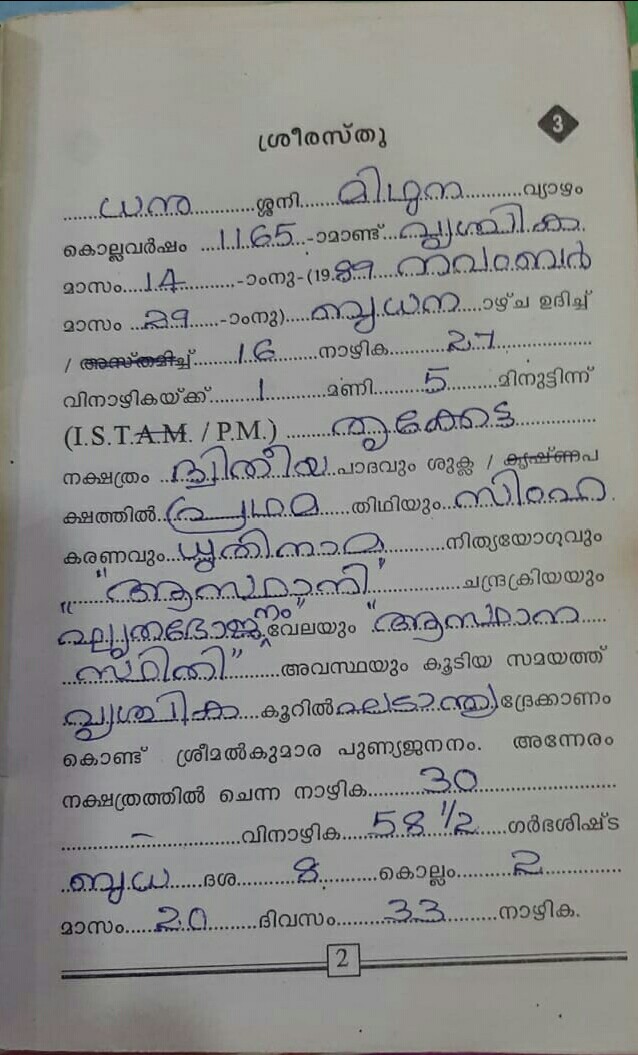 3
ശ്രീരസ്തു
ധനു ശ്ശനി മിഥുന വ്യാഴം
കൊല്ലവർഷം 1165 -ാമാണ്ട് വൃശ്ചിക
മാസം 14 -ാംനു-(1989 നവംബർ
മാസം 29 -ാംനു) ബുധന ാഴ്ച ഉദിച്ച്
/ അസ്തമിച്ച് 16 നാഴിക 27
വിനാഴികയ്ക്ക് 1 മണി 5 മിനുട്ടിന്
(I.S.T.A.M. / P.M.) തൃക്കേട്ട
നക്ഷത്രം ദ്വിതീയ പാദവും ശുക്ല / കൃഷ്ണപ
ക്ഷത്തിൽ പ്രഥമ തിഥിയും സിംഹ
കരണവും ധൃതിനാമ നിത്യയോഗവും
"ആസ്ഥാനി" ചന്ദ്രക്രിയയും
നം"
വേലയും "ആസ്ഥാന
സ്ഥിതി" അവസ്ഥയും കൂടിയ സമയത്ത്
വൃശ്ചിക കൂറിൽ ദ്രേക്കാണം
കൊണ്ട് ശ്രീമൽകുമാര പുണ്യജനനം. അന്നേരം
നക്ഷത്രത്തിൽ ചെന്ന നാഴിക 30
- വിനാഴിക 58 1/2 ഗർഭശിഷ്ട
ബുധ ദശ 8 കൊല്ലം 2
മാസം 20 ദിവസം 33 നാഴിക.
2